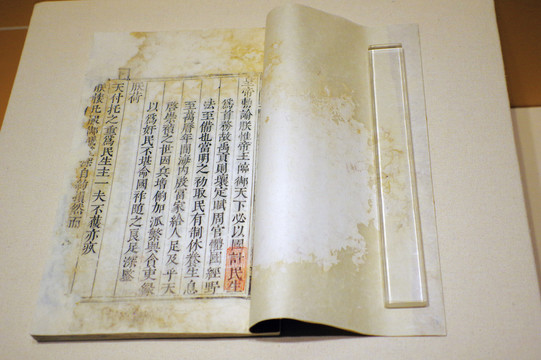 諭朕惟帝王臨御天下必以國計民生
爲首務故禹貢則壤定賦周官體國經野
法至備也當明之初取民有制休養生息
至萬曆年間海內殷富家給人足及乎天
啟崇禎之世因兵增餉加派繁興貪吏緣
以爲奸民不堪命國祚隨之良足深鑒
朕荷
天付托之重爲民生主一夫不獲亦疚
朕
自約損然而